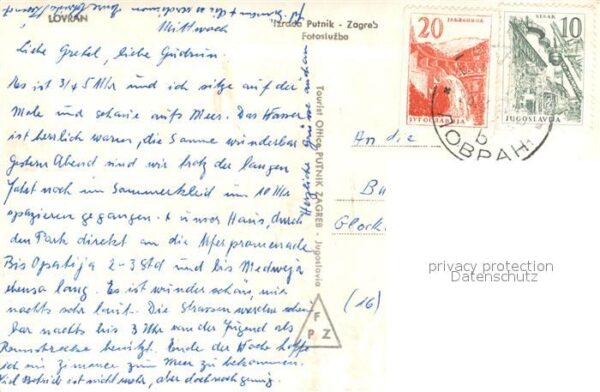 LOVRAN
Mittwoch
Liebe Gretel, liebe Gudrun.
Es ist 3/4 5 Uhr und ich sitze auf der
Mole und schaue aufs Meer. Das Wasser
ist herrlich warm, die Sonne wunderbar
Gestern Abend sind wir trotz der langen
Fahrt noch im Sommerkleid um 10 Uhr
spazieren gegangen. unser Haus, durch
den Park direkt an die Uferpromenade
Bis Opatija 2-3 Std und bis Medweja
ebenso lang. Es ist wunderschön, nur
nachts sehr laut. Die Strassen werden
bar nachts bis 3 Uhr von der Jugend als
Rennstrecke benützt. Ende der Woche hoffe
ich ein Zimmer zum Meer zu bekommen.
Viel Betrieb ist nicht mehr, aber doch noch genug.
Herzliche Grüsse
Izrada Putnik - Zagreb
Fotoslužba
Tourist Office PUTNIK ZAGREB - Jugoslavia
F
P Z
20
JABLANICA
JUGOSLAVIJA
SISAK
10
JUGOSLAVIJA
ЛОВРАН
б
An die
Bü
Glock
(16)
privacy protection
Datenschutz